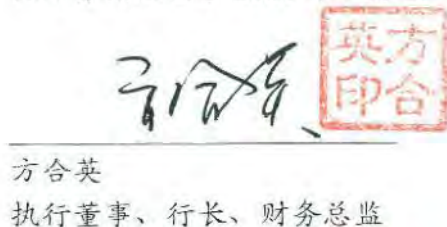 方合英
英方
印合
方合英
执行董事、行长、财务总监